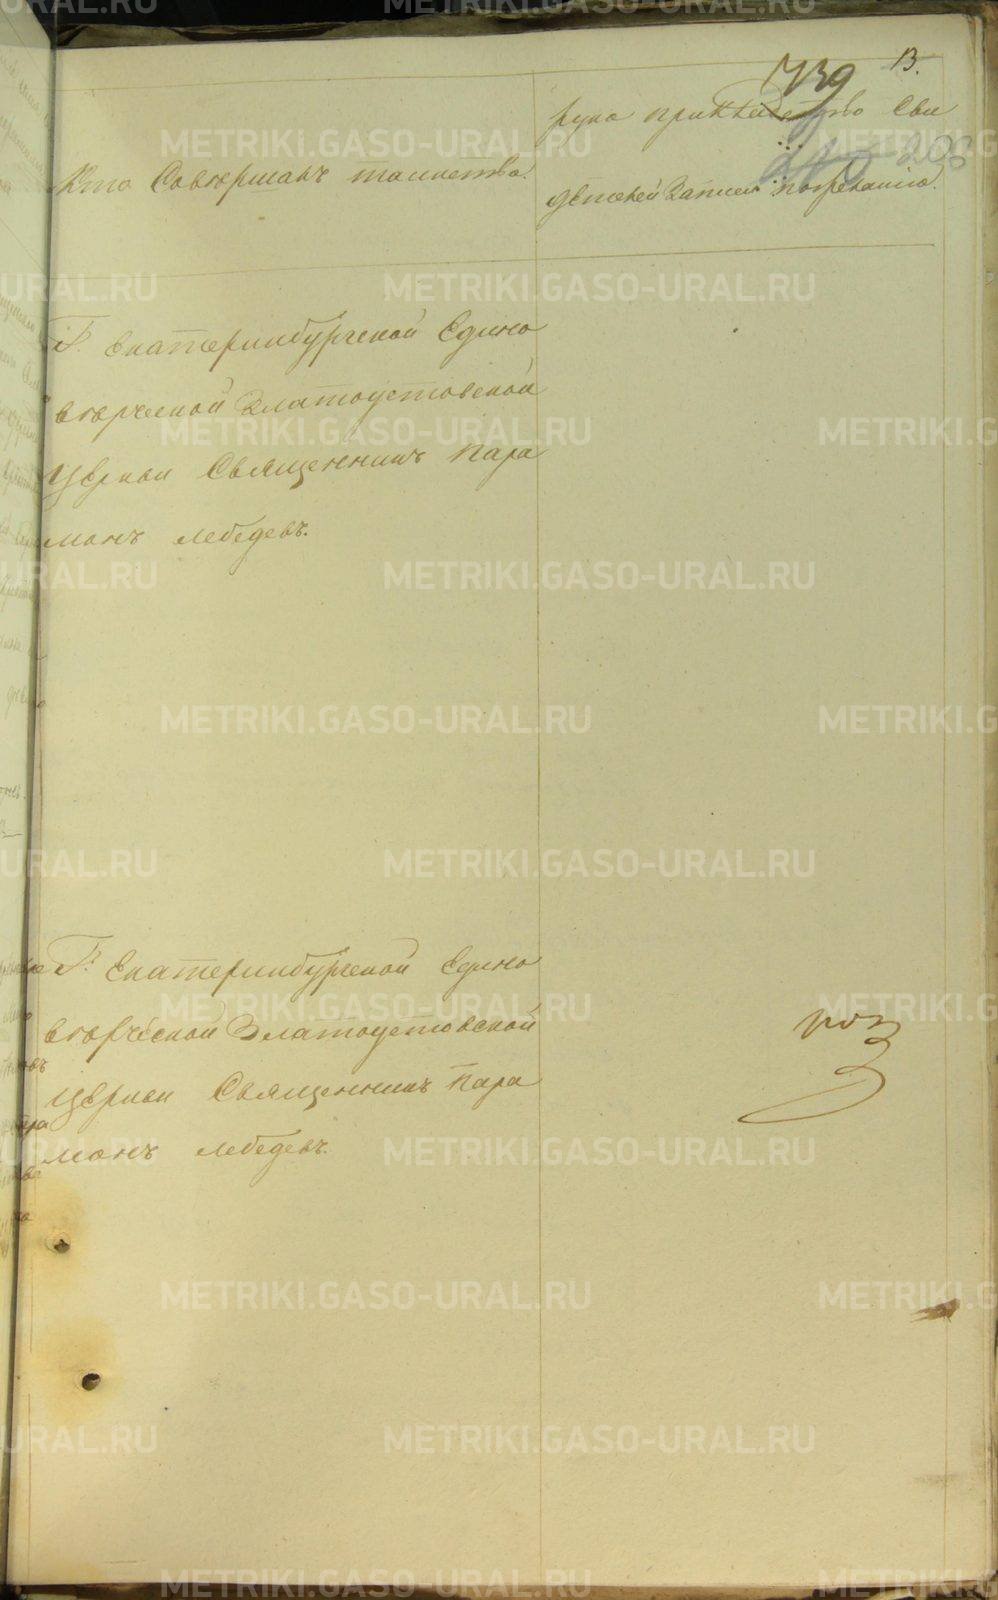 739
13.
208
Кто Совершалъ таинство.
рукоприкладство Сви
детелей записи по желанію.
Г. Екатеринбургской Едино
верческой Златоустовской
Церкви Священникъ Пара
монъ Лебедевъ.
Г. Екатеринбургской Едино
верческой Златоустовской
Церкви Священникъ Пара
монъ Лебедевъ.
METRIKI.GASO-URAL.RU